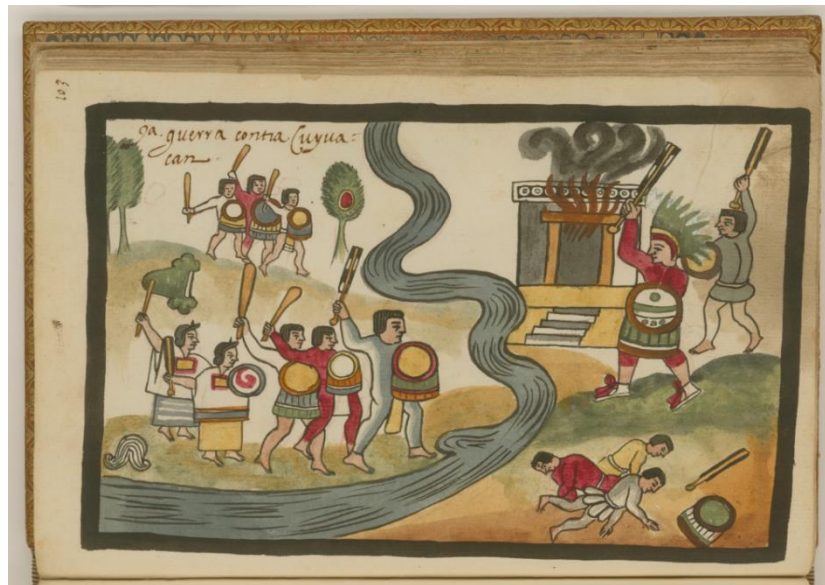 103
guerra contra Cuyua=
can.